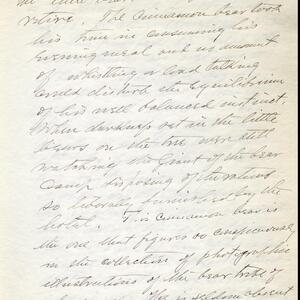 retire. The Cinnamon bear took
his time in consuming his
evening meal and no amount
of whistling or loud talking
could disturb the equilibrium
of his well balanced instinct.
When darkness set in the little
bears on the tree were still
watching the Giant of the bear
Camp disposing of the
so liberally furnished by the
hotel. This cinnamon bear is
the one that figures so conspicuously
in the collection of photographic
illustrations of the bear tribe of
He is seldom absent